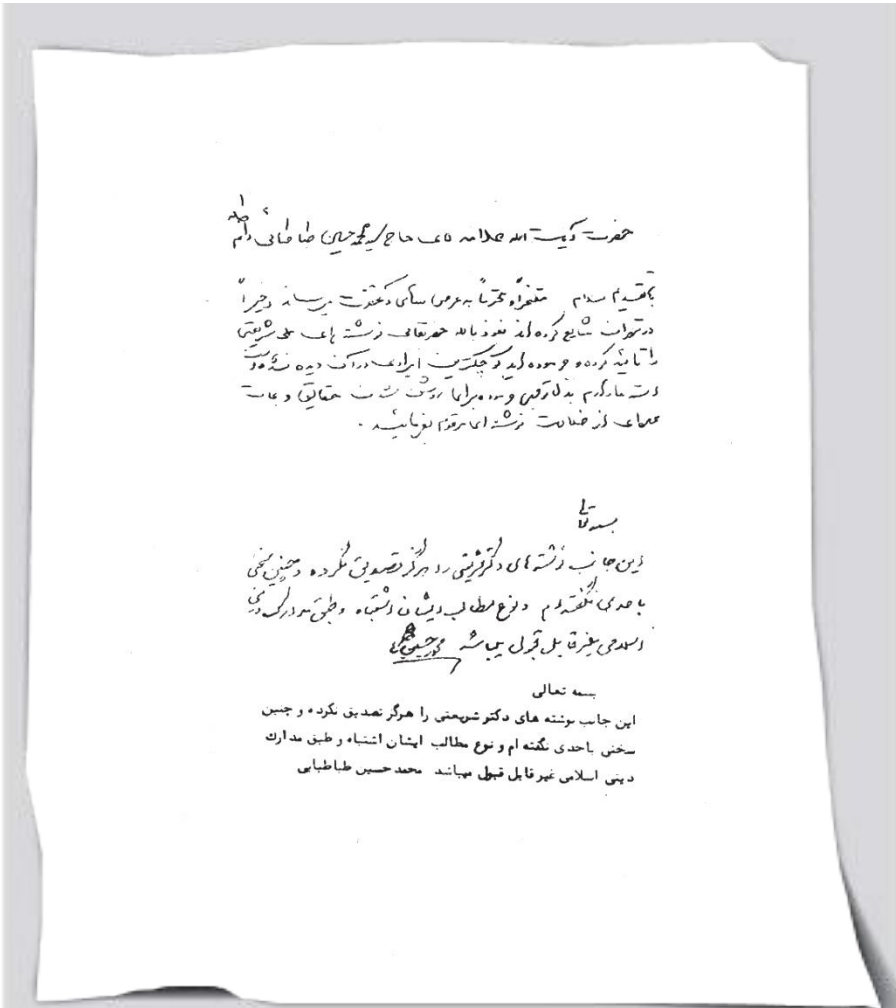 حضرت آیت الله علامه آقای حاج سید محمد حسین طباطبائی دام ظله
با تقدیم سلام مفتخراً و محترماً به عرض عالی میرساند اخیراً
در تهران شایع کرده اند نعوذ بالله حضرتعالی نوشته های علی شریعتی
را تائید کرده و فرموده اید کوچکترین ایرادی در آن دیده نشده
روشن شدن حقایق
فرمائید.
بسمه تعالی
این جانب نوشته های دکتر شریعتی را هرگز تصدیق نکرده و چنین سخنی
باحدی نگفته ام و نوع مطالب ایشان اشتباه و طبق مدارک دینی
اسلامی غیر قابل قبول میباشد محمد حسین طباطبائی
بسمه تعالی
این جانب نوشته های دکتر شریعتی را هرگز تصدیق نکرده و چنین
سخنی باحدی نگفته ام و نوع مطالب ایشان اشتباه و طبق مدارك
دینی اسلامی غیر قابل قبول میباشد محمد حسین طباطبایی